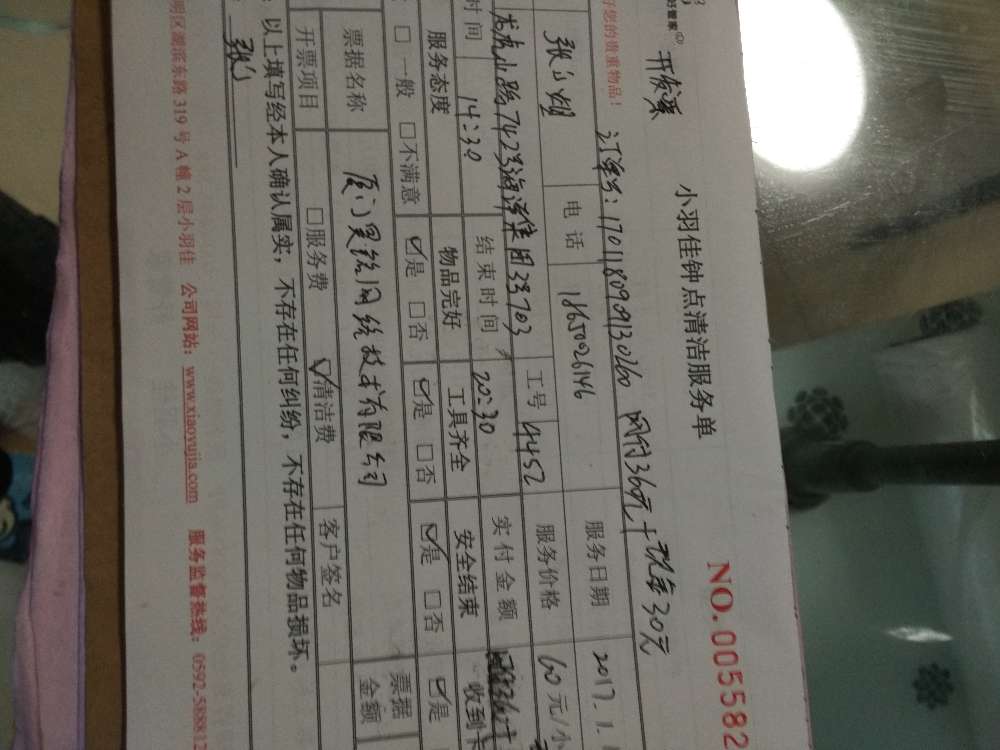 开发票
小羽佳钟点清洁服务单
NO. 005582
好您的贵重物品!
订单号:1701180909130260 网付360元+现金30元
电话 18650026146 服务日期 2017.1.
龙虎山路742号海洋集团2号703 工号 4452 服务价格 60元/小
时间 14:30 结束时间 20:30 实付金额
服务态度 物品完好 工具齐全 安全结束 收到
□一般 □不满意 ☑是 □否 ☑是 □否 ☑是 □否 ☑是
票据名称 厦门 网络技术有限公司 票据金额
开票项目 □服务费 ☑清洁费 客户签名
以上填写经本人确认属实,不存在任何纠纷,不存在任何物品损坏。
明区湖滨东路319号A幢2层小羽佳 公司网站:www.xiaoyujia.com 服务监督热线:0592-588812